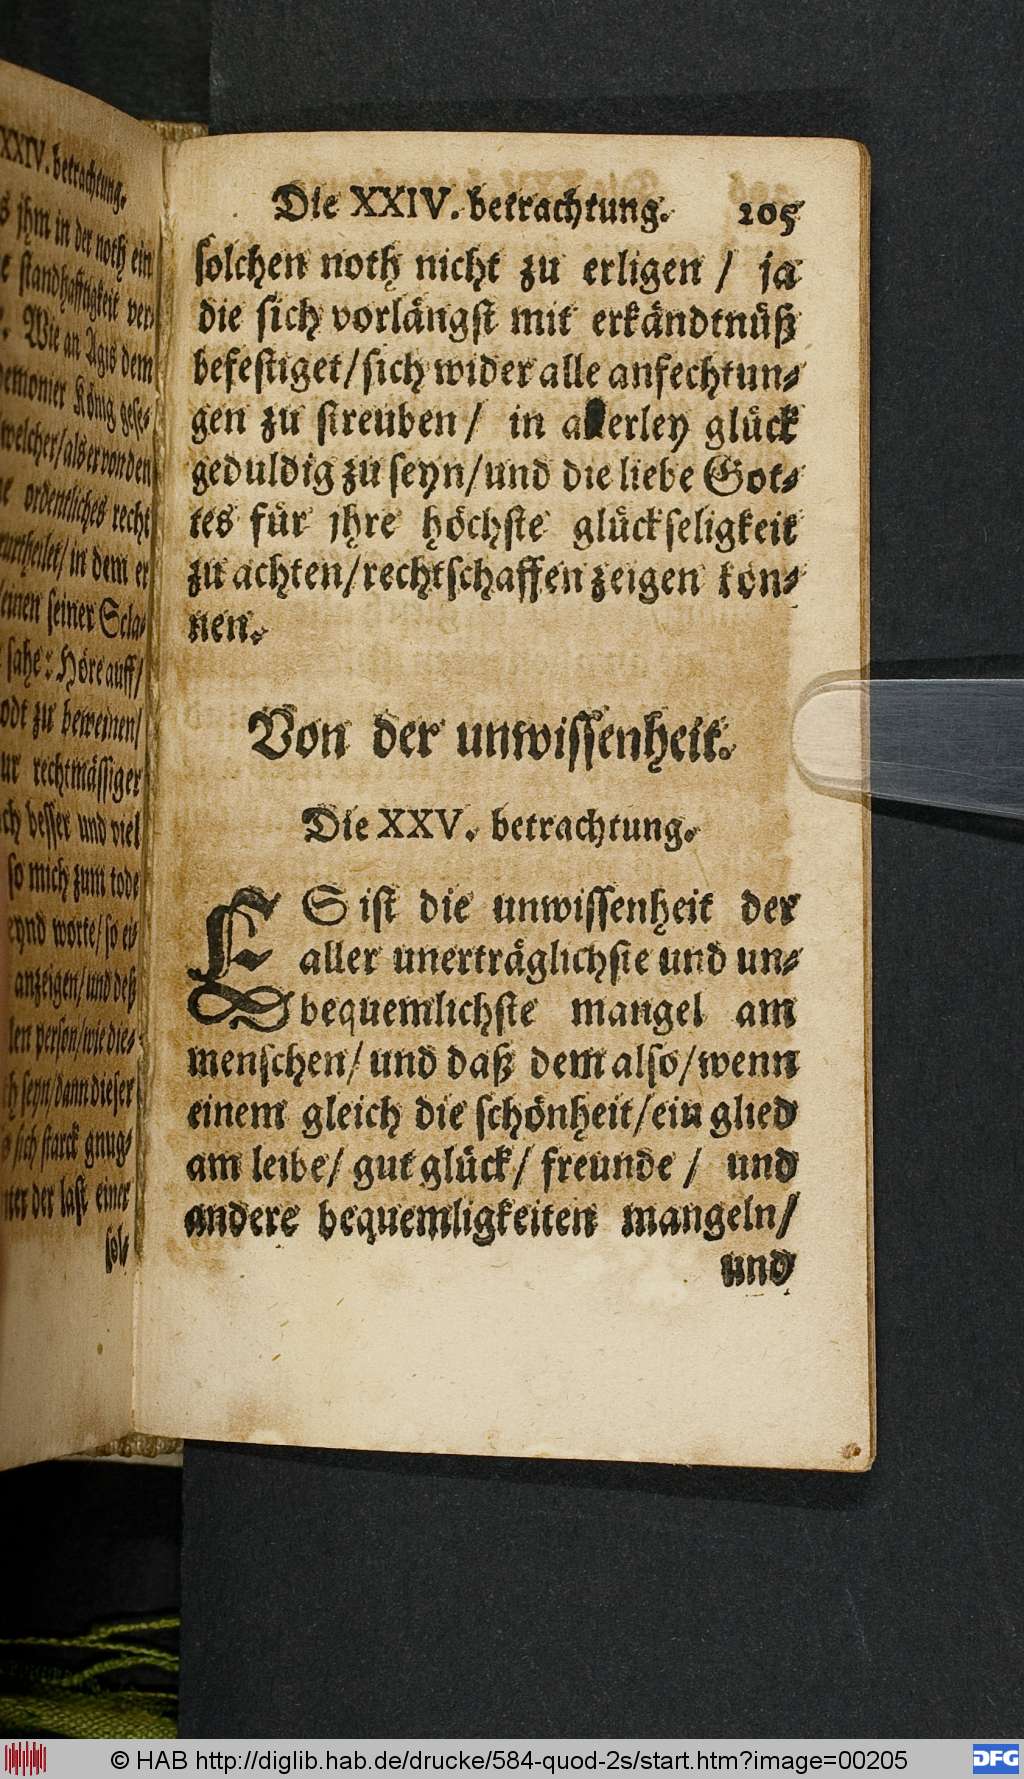 XXIV. betrachtung.
jhm in der noth ein
standhafftigkeit ver-
Wie an Agis dem
König gese-
welcher/ als er von den
ordentliches recht
in dem er
einen seiner Scla-
sahe: Höre auff/
zu beweinen/
rechtmässiger
besser und viel
so mich zum tode
worte/ so ei-
anzeigen/ und deß
person/ wie die-
seyn/ dann dieser
sich starck gnug-
der last einer
sol-
Die XXIV. betrachtung. 205
solchen noth nicht zu erligen / ja
die sich vorlängst mit erkändtnüß
befestiget/ sich wider alle anfechtun-
gen zu streuben / in allerley glück
geduldig zu seyn/ und die liebe Got-
tes für jhre höchste glückseligkeit
zu achten/ rechtschaffen zeigen kön-
nen.
Von der unwissenheit.
Die XXV. betrachtung.
ES ist die unwissenheit der
aller unerträglichste und un-
bequemlichste mangel am
menschen/ und daß dem also/ wenn
einem gleich die schönheit/ ein glied
am leibe/ gut glück/ freunde / und
andere bequemligkeiten mangeln/
und
© HAB http://diglib.hab.de/drucke/584-quod-2s/start.htm?image=00205
DFG